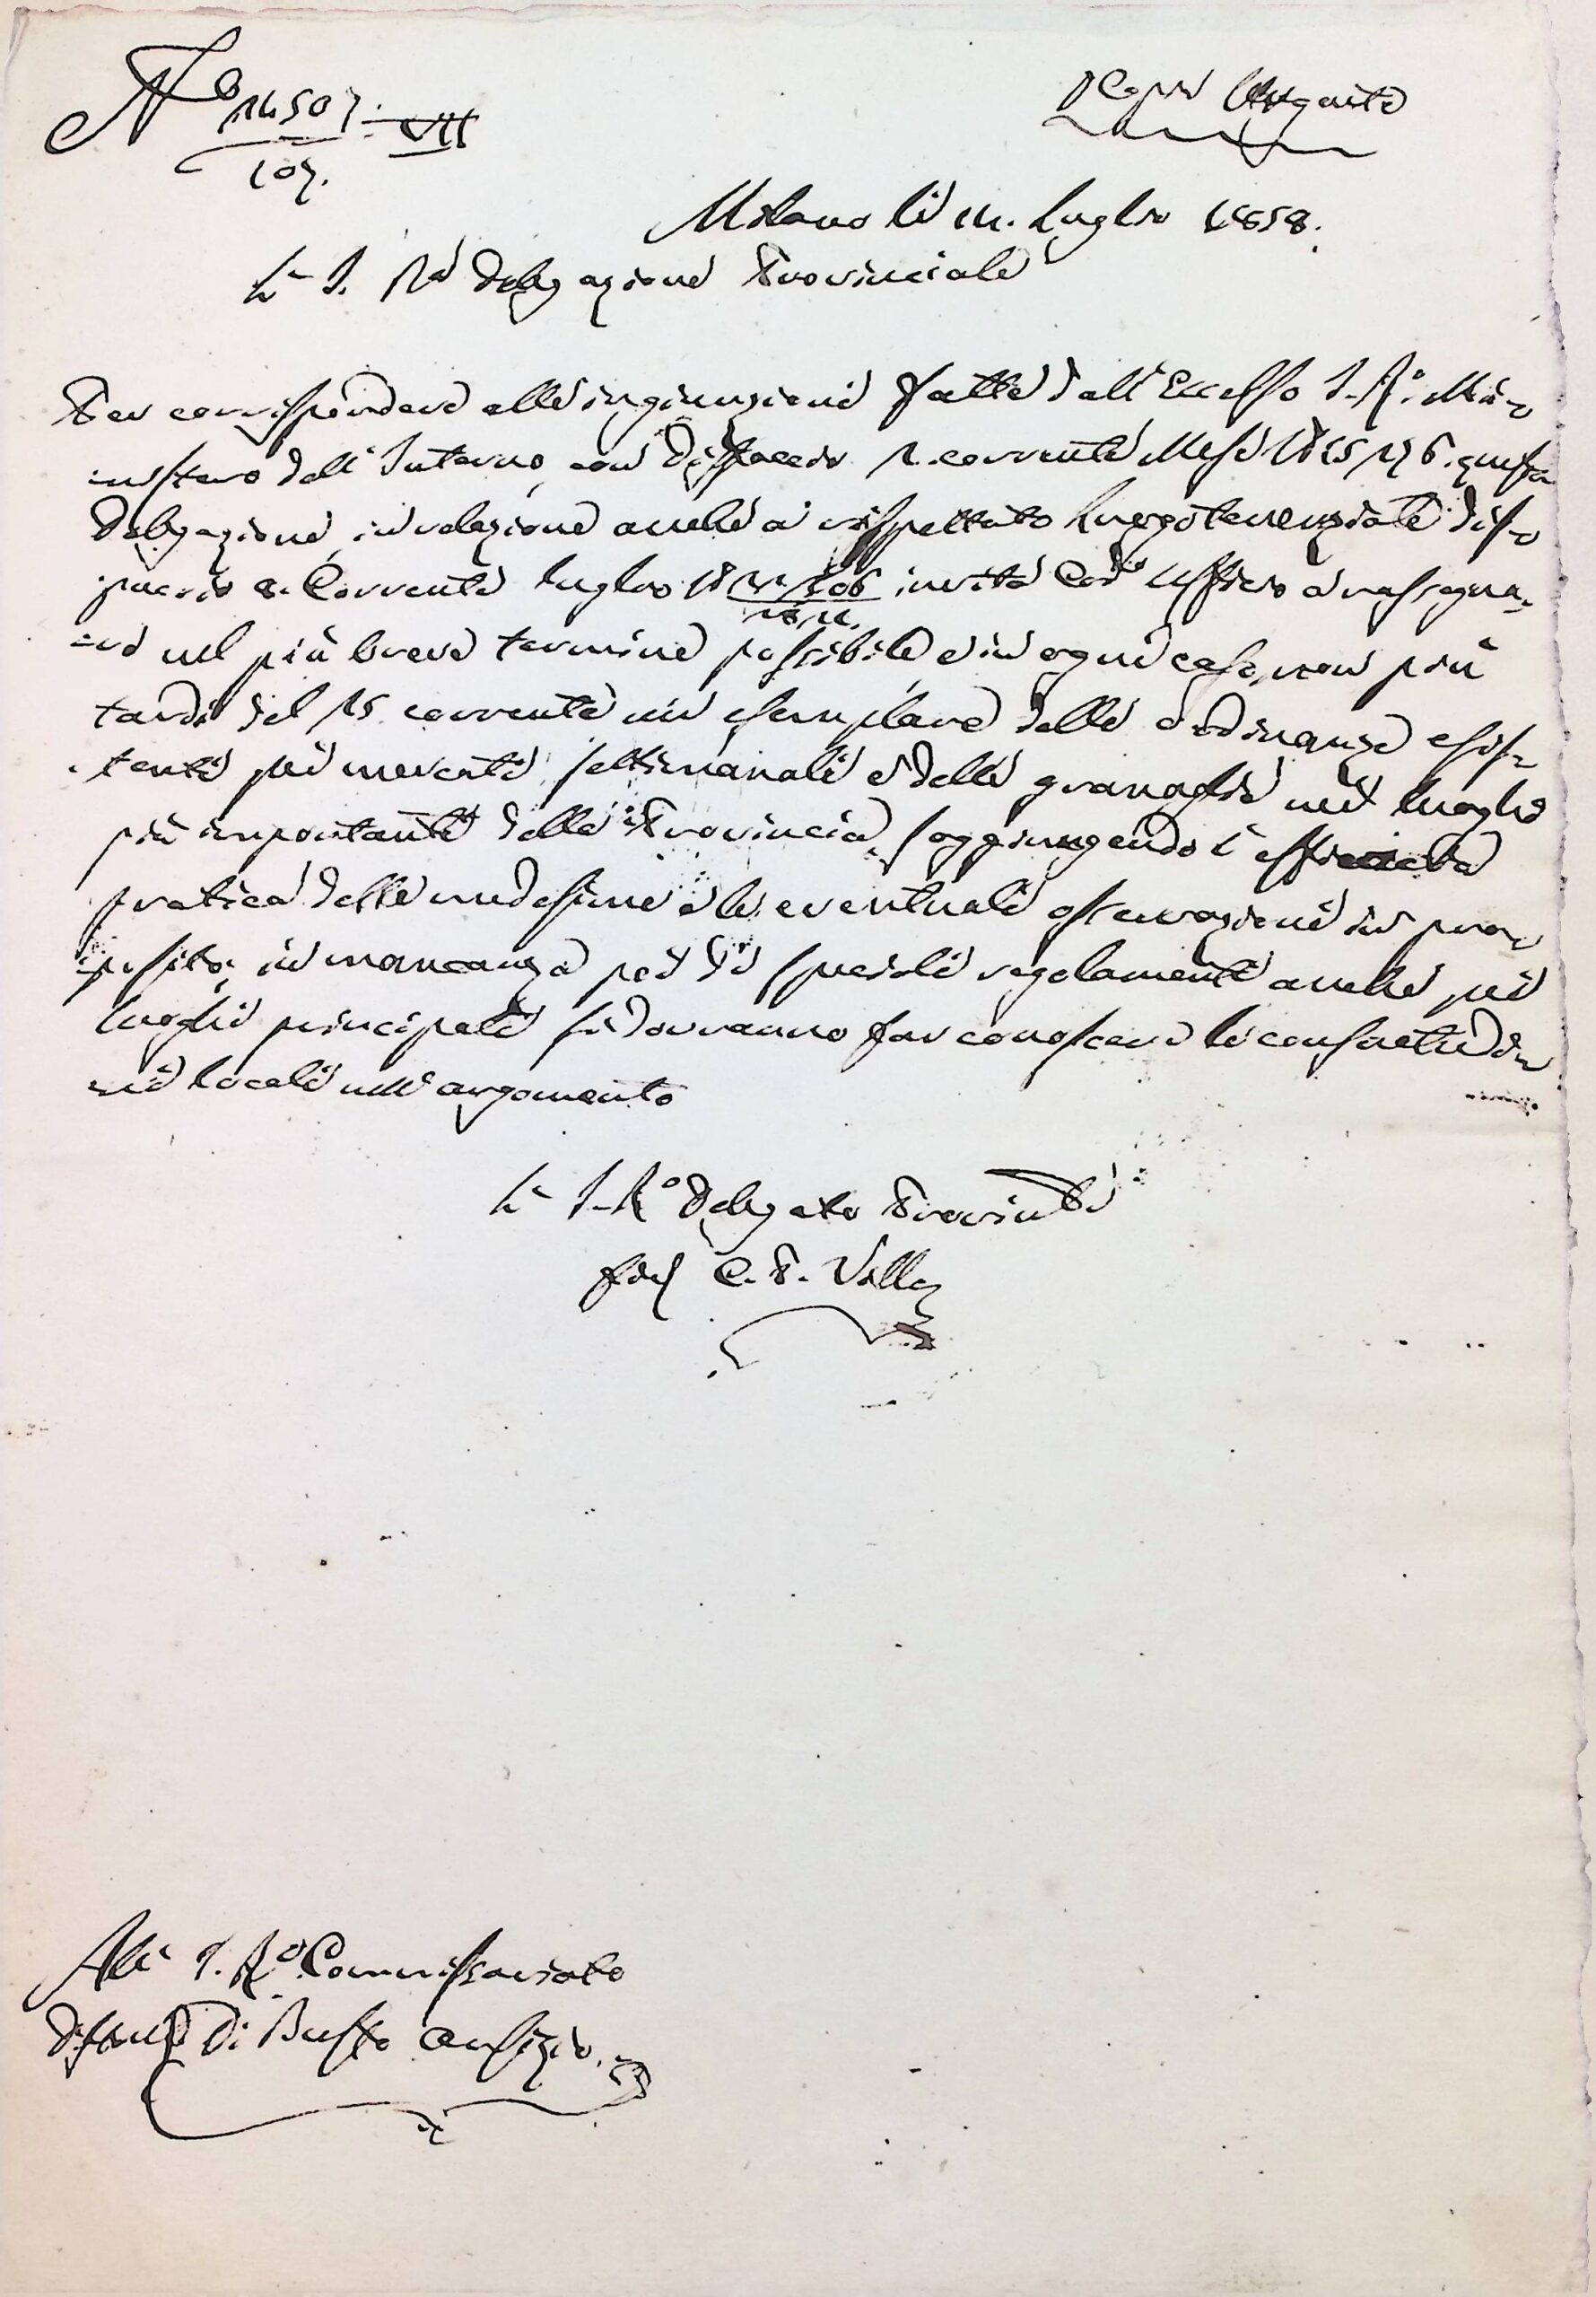 N.o 14507 VII
107.
Copia Urgente
Milano li 11. Luglio 1858.
L' I. R.a Delegazione Provinciale
Per corrispondere alle ingiunzioni fatte dall'Eccelso I. R.o Mi-
nistero dell'Interno, con Dispaccio 1. corrente Mese questa
Delegazione, in relazione anche a rispettato Luogotenenziale dis-
paccio 8. Corrente luglio invita Cod.o Ufficio a rassegna-
re nel più breve termine possibile e in ogni caso, non più
tardi del 15 corrente un esemplare delle ordinanze esis-
tenti pei mercati settimanali e delle granaglie nei luoghi
più importanti della Provincia, soggiungendo l'efficacia
pratica delle medesime e le eventuali osservazioni in pro-
posito; in mancanza poi di speciali regolamenti anche pei
luoghi principali si dovranno far conoscere le consuetudi-
ni locali nell'argomento
L' I. R.o Delegato Provin.le
C. P. Villa
All' I. R.o Commissariato
Distrett.e Di Busto Arsizio